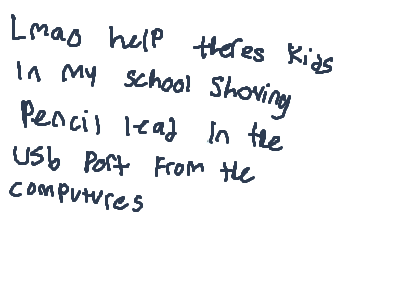 Lmao help theres kids
in my school shoving
Pencil lead in the
USb Port From the
computures